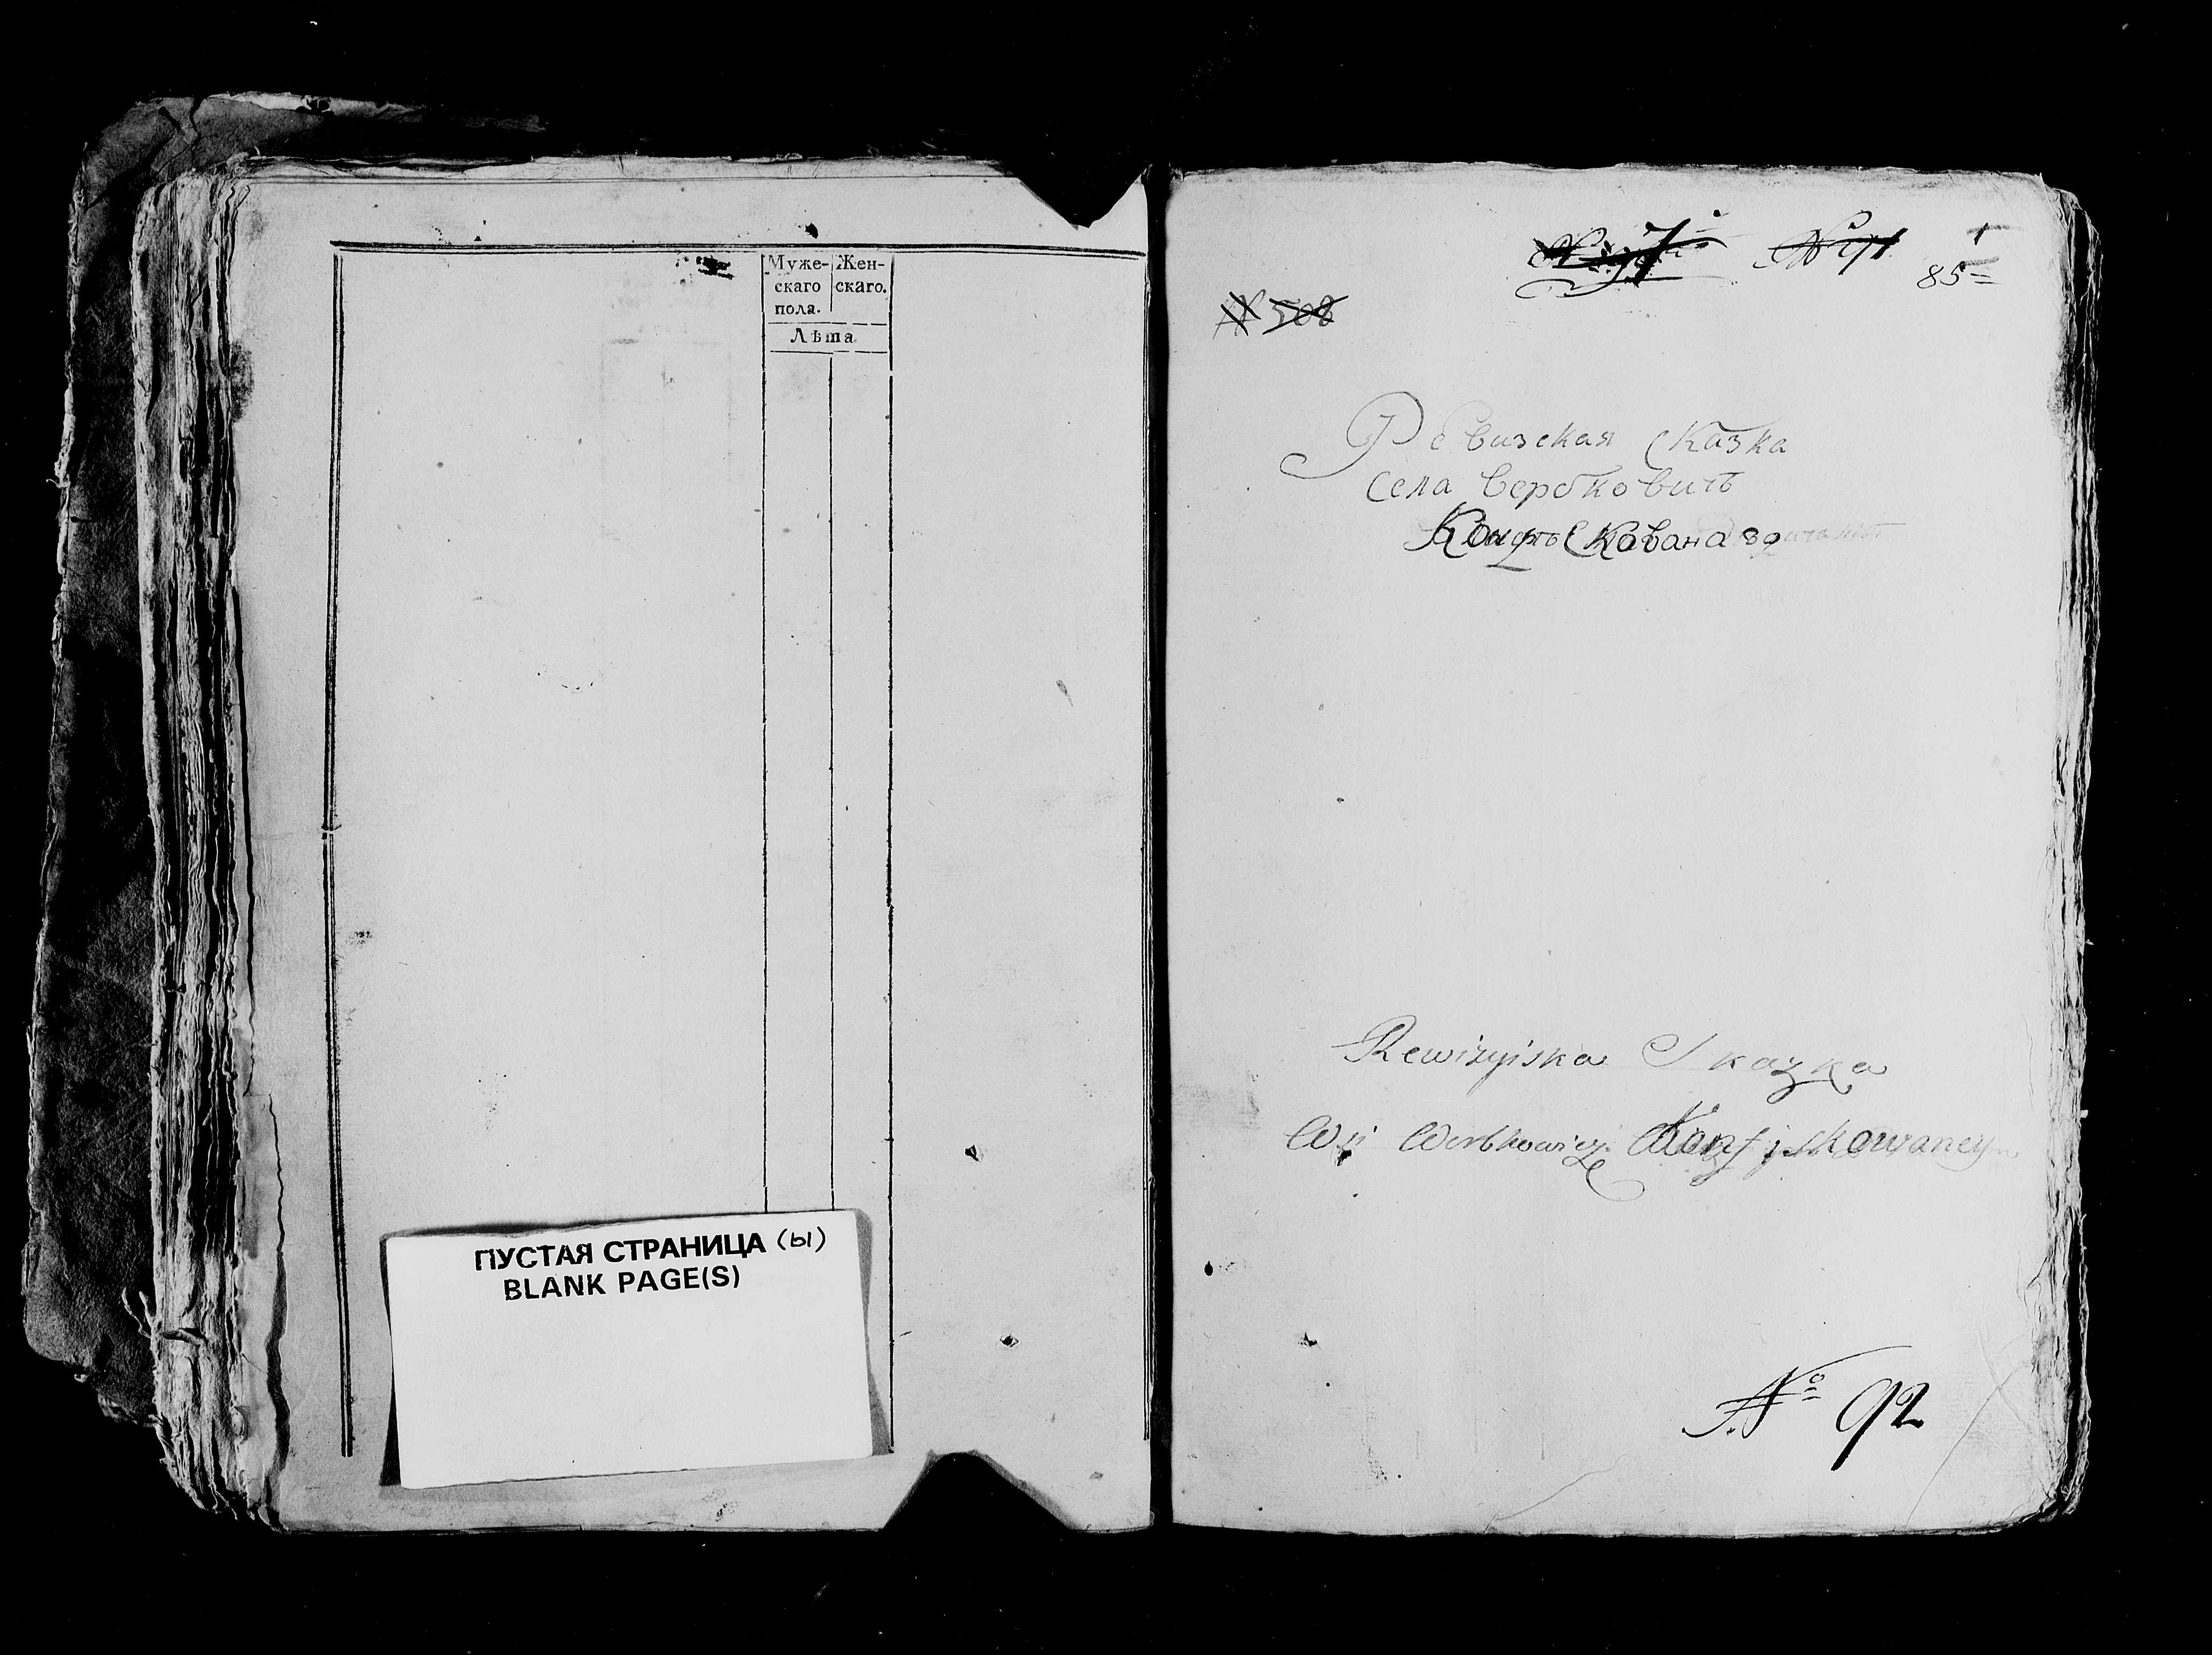 Муже- Жен-
скаго скаго.
пола.
Лѣта
ПУСТАЯ СТРАНИЦА (ы)
BLANK PAGE(S)
№ 91
85
№ 508
Ревизская Сказка
Села Вербковичь
Конфыскована
Rewizyiska Skazka
Wsi Werbkowicz Konfiskowaney
№ 92